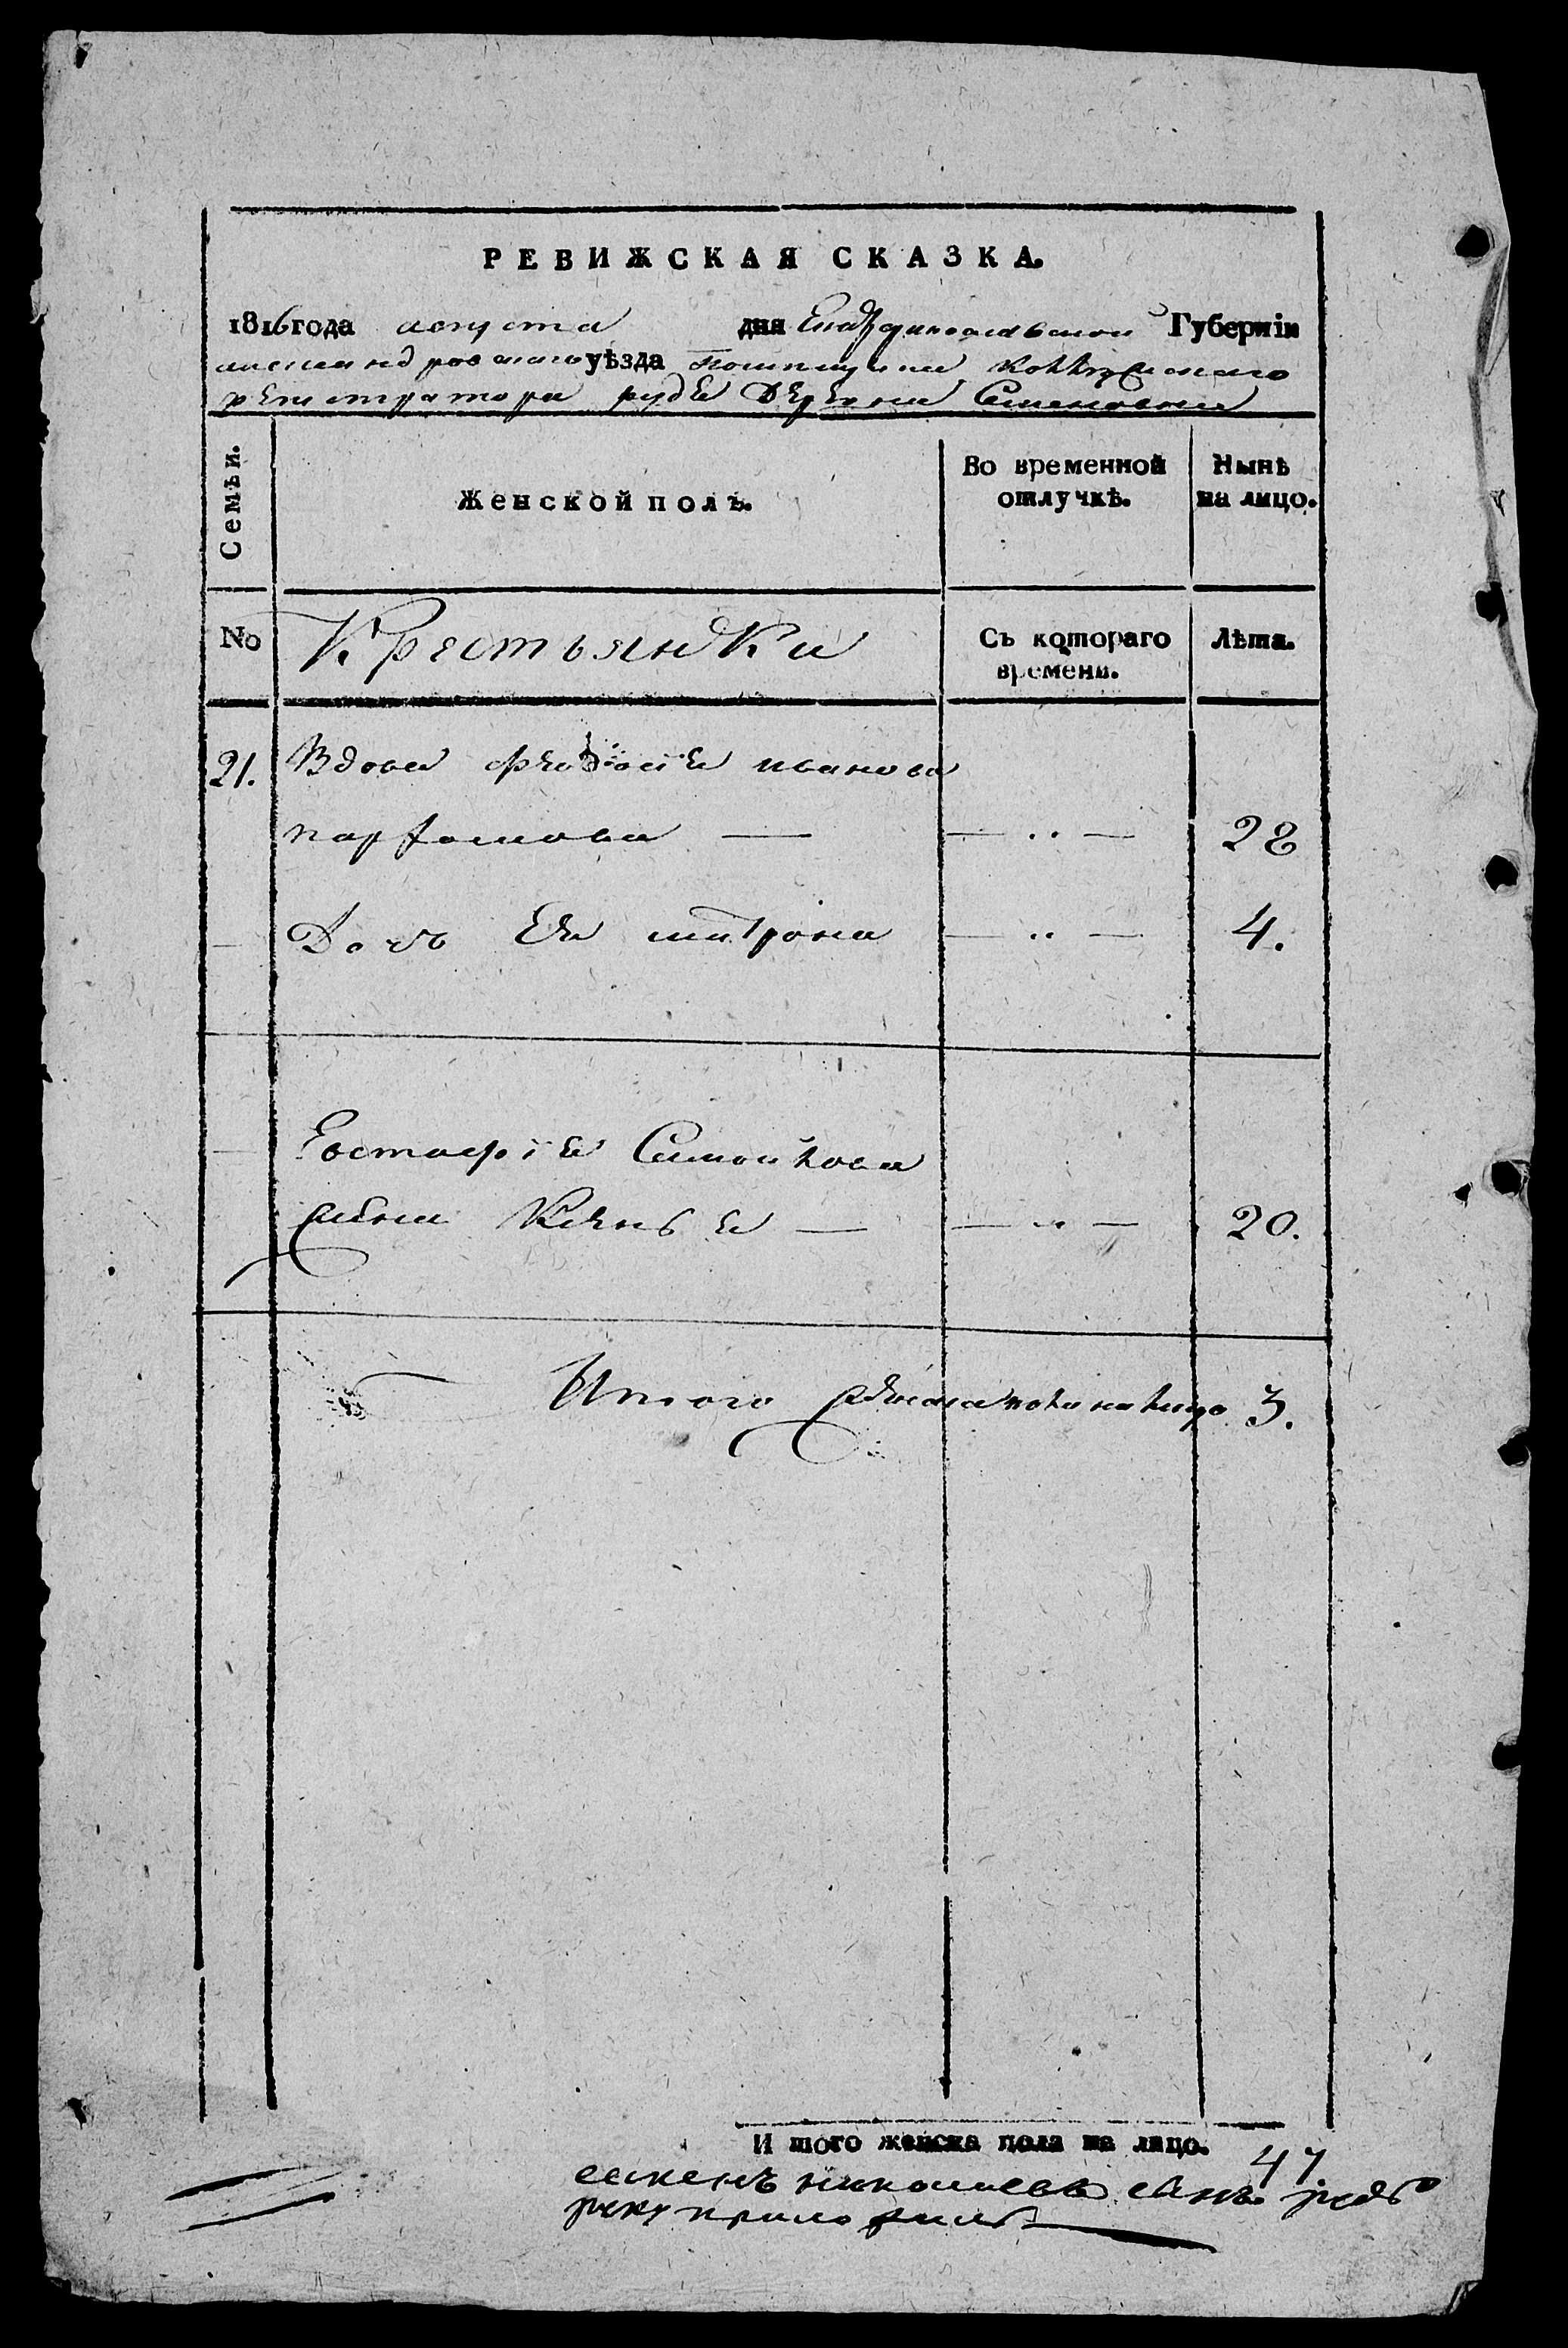 РЕВИЖСКАЯ СКАЗКА.
1816 года августа дня Екатеринославской Губерніи
александровскаго уѣзда помещика коллежскаго
регистратора рудя Деревни Семеновки
Семьи.
Женской полъ.
Во временной отлучкѣ.
Нынѣ на лицо.
No
Крестьянки
Съ котораго времени.
Лѣта.
21. Вдова феодосія иванова
парфомова — — " — 28
— Дочь Ея матрона — " — 4.
— Евстафія Самойлова
жена Ксенья — — " — 20.
Итого женска пола на лицо 3.
И того женска пола на лицо. 47.
семенъ николаевъ сынъ рудь
руку приложилъ